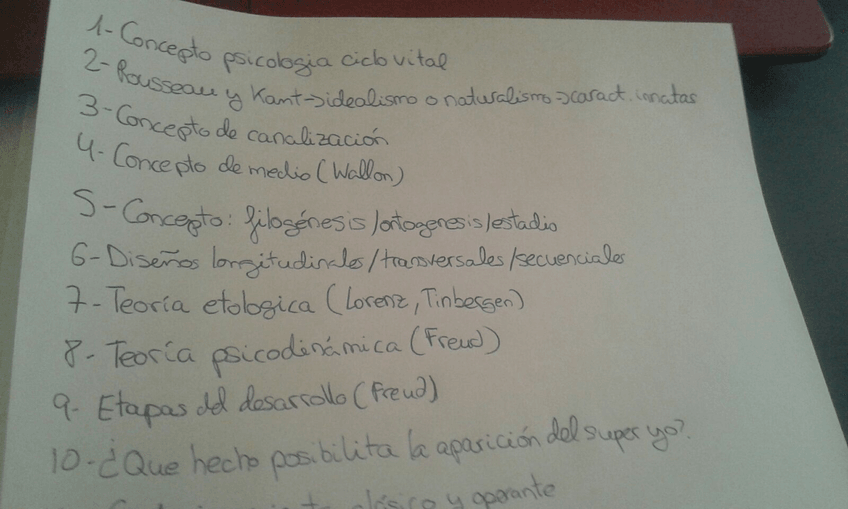 1- Concepto psicologia ciclo vital
2- Rousseau y Kant->idealismo o naturalismo =>caract. innatas
3- Concepto de canalización
4- Concepto de medio (Wallon)
5- Concepto: filogénesis/ontogenesis/estadio
6- Diseños longitudinales/transversales/secuenciales
7- Teoría etologica (Lorenz, Tinbergen)
8- Teoría psicodinámica (Freud)
9- Etapas del desarrollo (Freud)
10- ¿Que hecho posibilita la aparición del super yo?
clásico y operante